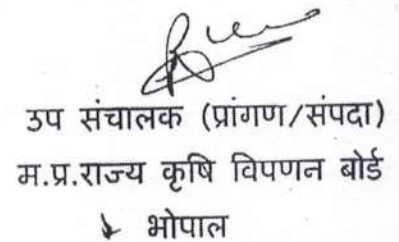 उप संचालक (प्रांगण/संपदा)
म.प्र.राज्य कृषि विपणन बोर्ड
भोपाल